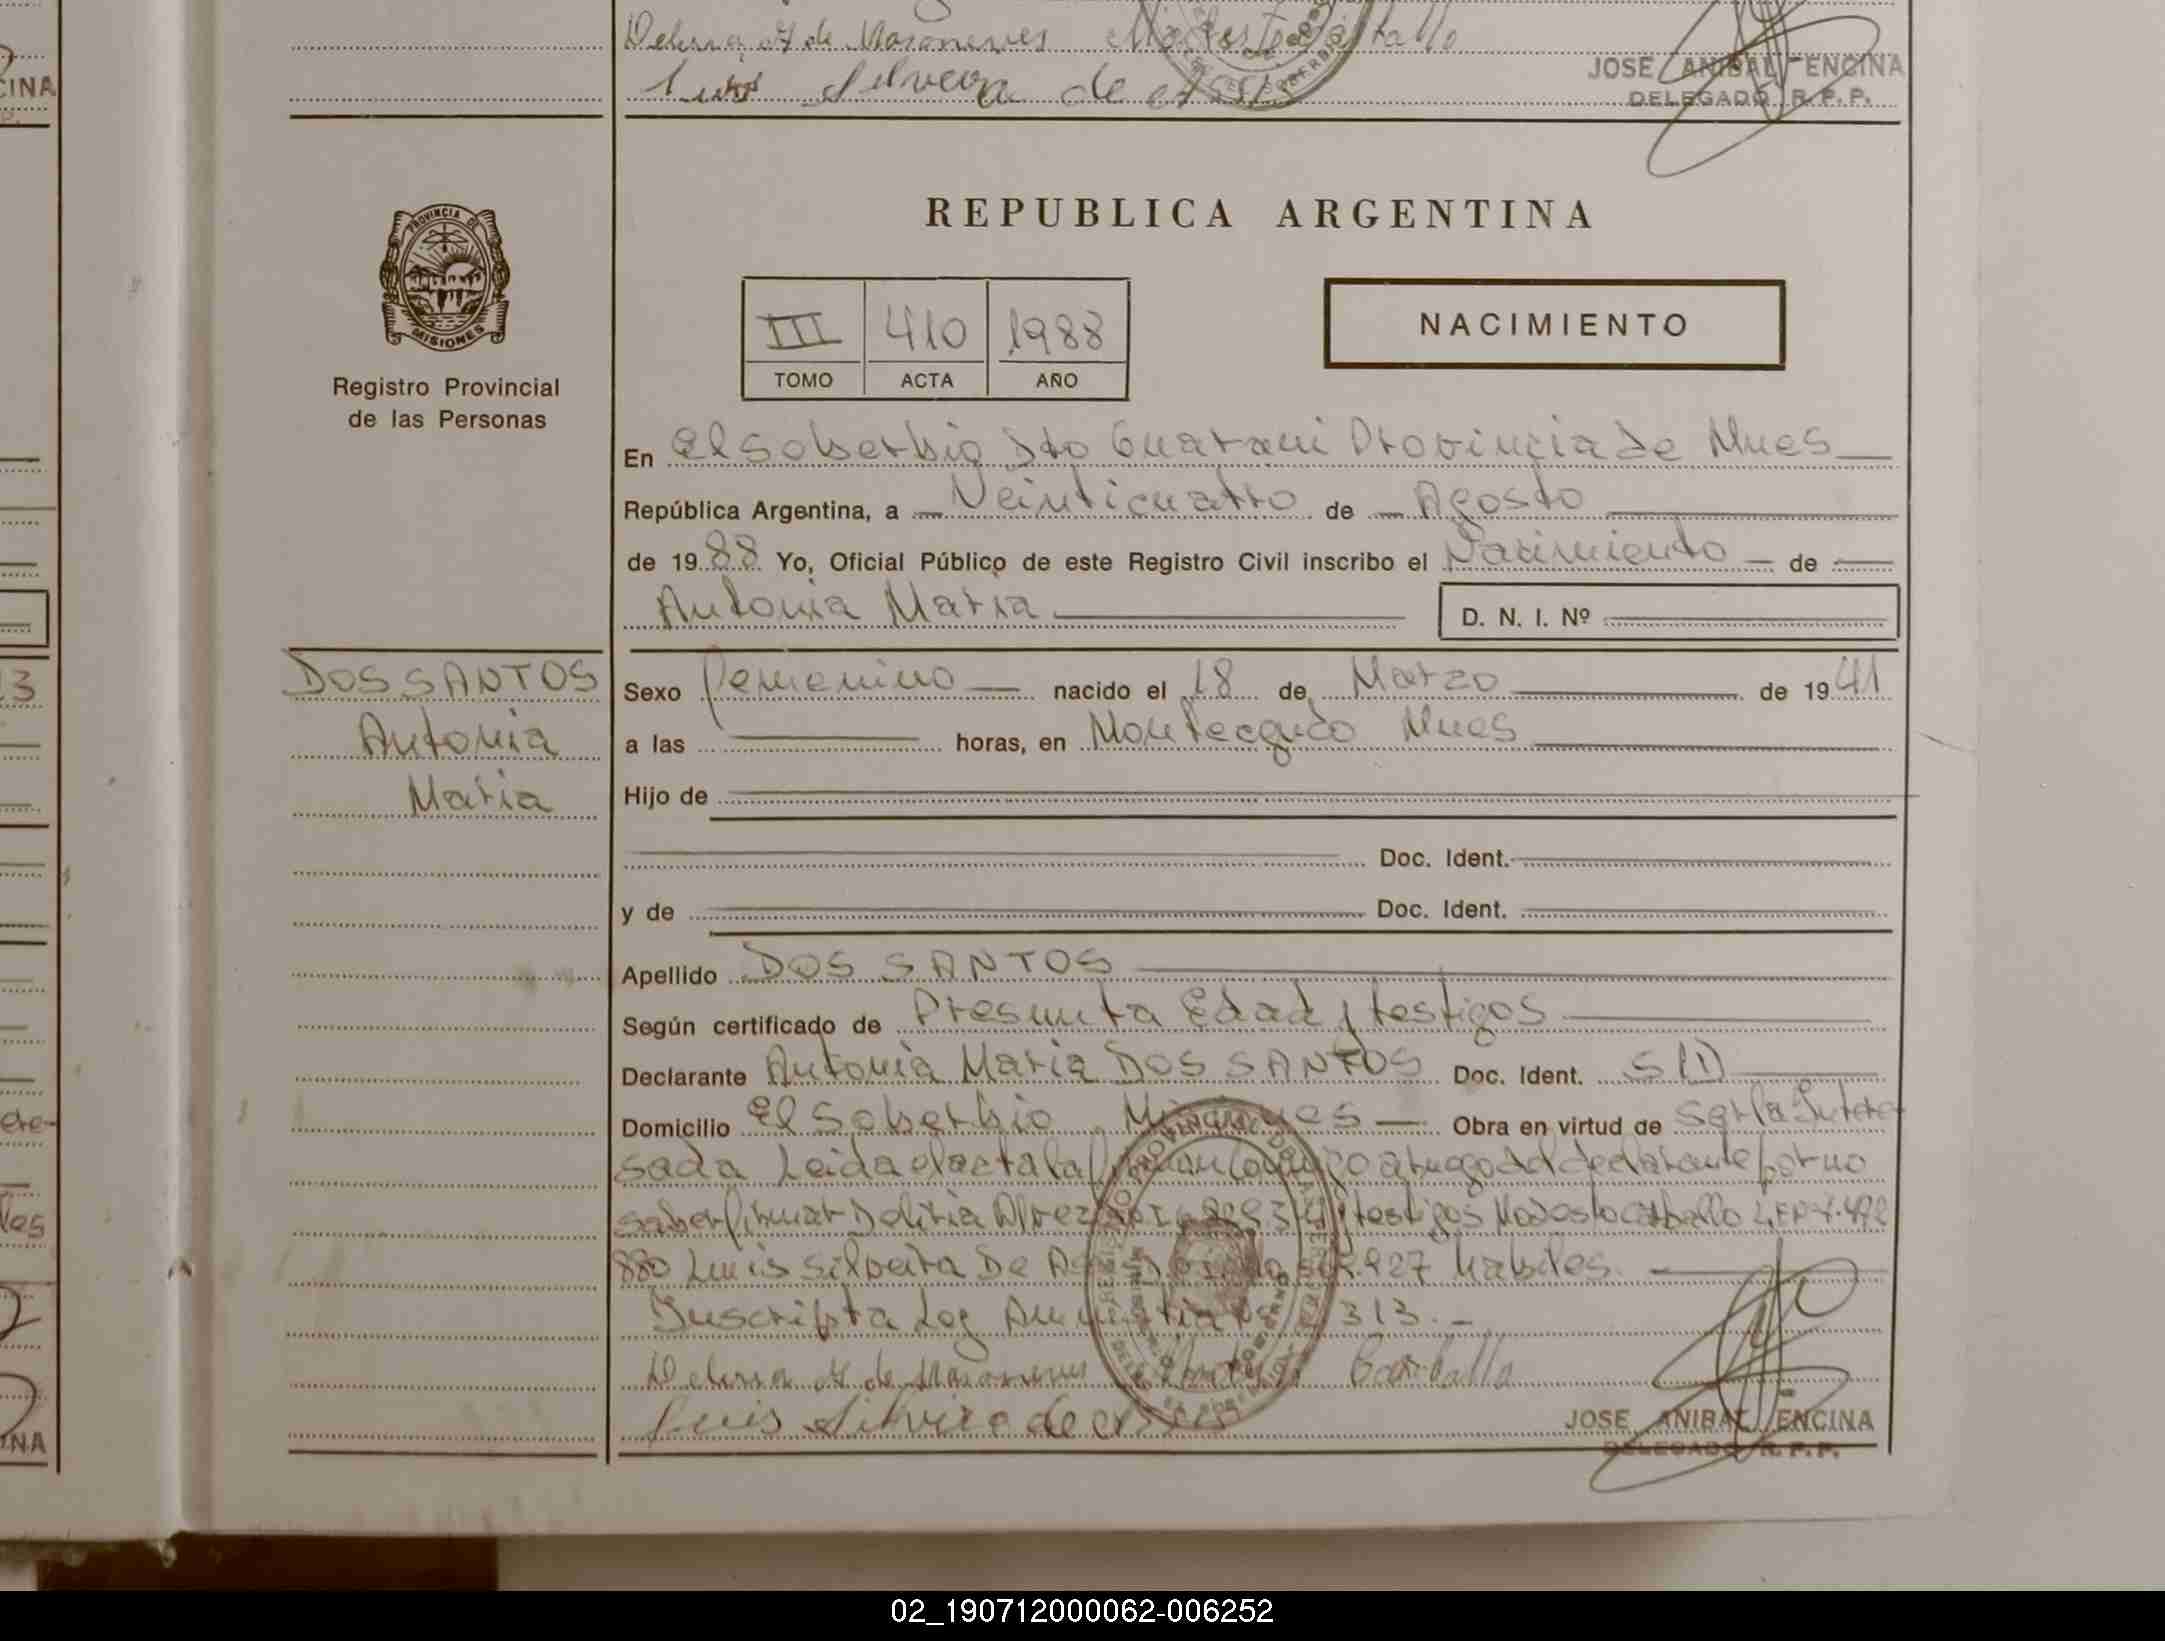 CINA
Deliria A de Maronenes Modesto Carballo
Luis Silveira de Assis
JOSE ANIBAL ENCINA
DELEGADO R. P. P.
PROVINCIA DE
MISIONES
Registro Provincial
de las Personas
REPUBLICA ARGENTINA
III 410 1988
TOMO ACTA AÑO
NACIMIENTO
En El Soberbio Dto Guarani Provincia de Mnes
República Argentina, a Veinticuatro de Agosto
de 1988 Yo, Oficial Público de este Registro Civil inscribo el Nacimiento de
Antonia Maria D. N. I. Nº
DOS SANTOS
Antonia
Maria
Sexo Femenino nacido el 18 de Marzo de 1941
a las horas, en Monteagudo Mnes
Hijo de
Doc. Ident.
y de Doc. Ident.
Apellido DOS SANTOS
Según certificado de Presunta Edad y testigos
Declarante Antonia Maria DOS SANTOS Doc. Ident. S/D
Domicilio El Soberbio Misiones Obra en virtud de Ser la Intere
sada Leida el acta la firman conmigo a ruego del declarante por no
saber firmar Deliria Alvez y testigos Modesto Carballo
880 Luis Silveira De Assis 927 habiles.
Suscripta Ley Amnistia 313.-
Deliria A de Maronenes Modesto Carballo
Luis Silveira de Assis
JOSE ANIBAL ENCINA
DELEGADO R. P. P.
02_190712000062-006252